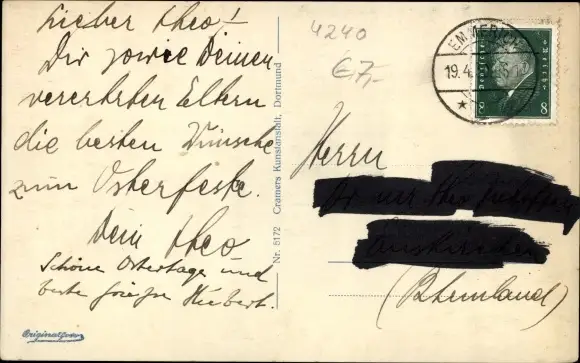 Lieber Theo!
Dir sowie Deinen
verehrten Eltern
die besten Wünsche
zum Osterfeste.
Dein Theo
Schöne Ostertage und
beste Grüße Hubert.
Originalfoto
Nr. 5172 Cramers Kunstanstalt, Dortmund
4240
€7,-
EMMERICH
19.4.
8 8
Herrn
(Rheinland)